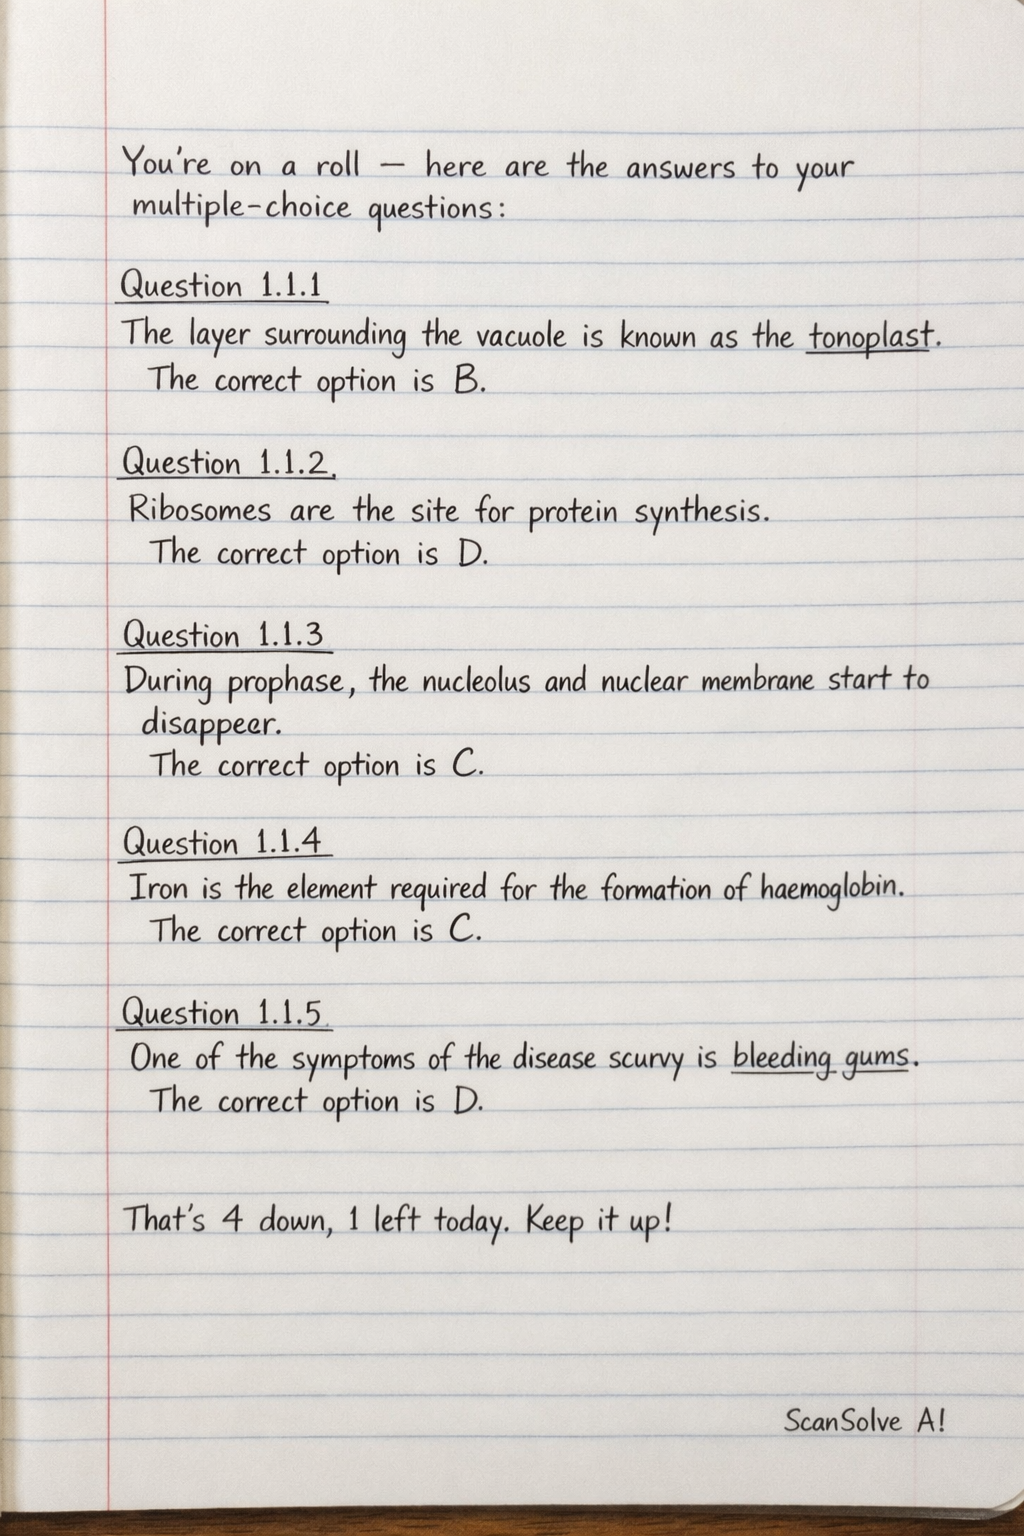 You're on a roll — here are the answers to your
multiple-choice questions:
Question 1.1.1
The layer surrounding the vacuole is known as the tonoplast.
The correct option is B.
Question 1.1.2.
Ribosomes are the site for protein synthesis.
The correct option is D.
Question 1.1.3
During prophase, the nucleolus and nuclear membrane start to
disappeer.
The correct option is C.
Question 1.1.4
Iron is the element required for the formation of haemoglobin.
The correct option is C.
Question 1.1.5.
One of the symptoms of the disease scurvy is bleeding gums.
The correct option is D.
That's 4 down, 1 left today. Keep it up!
ScanSolve A!